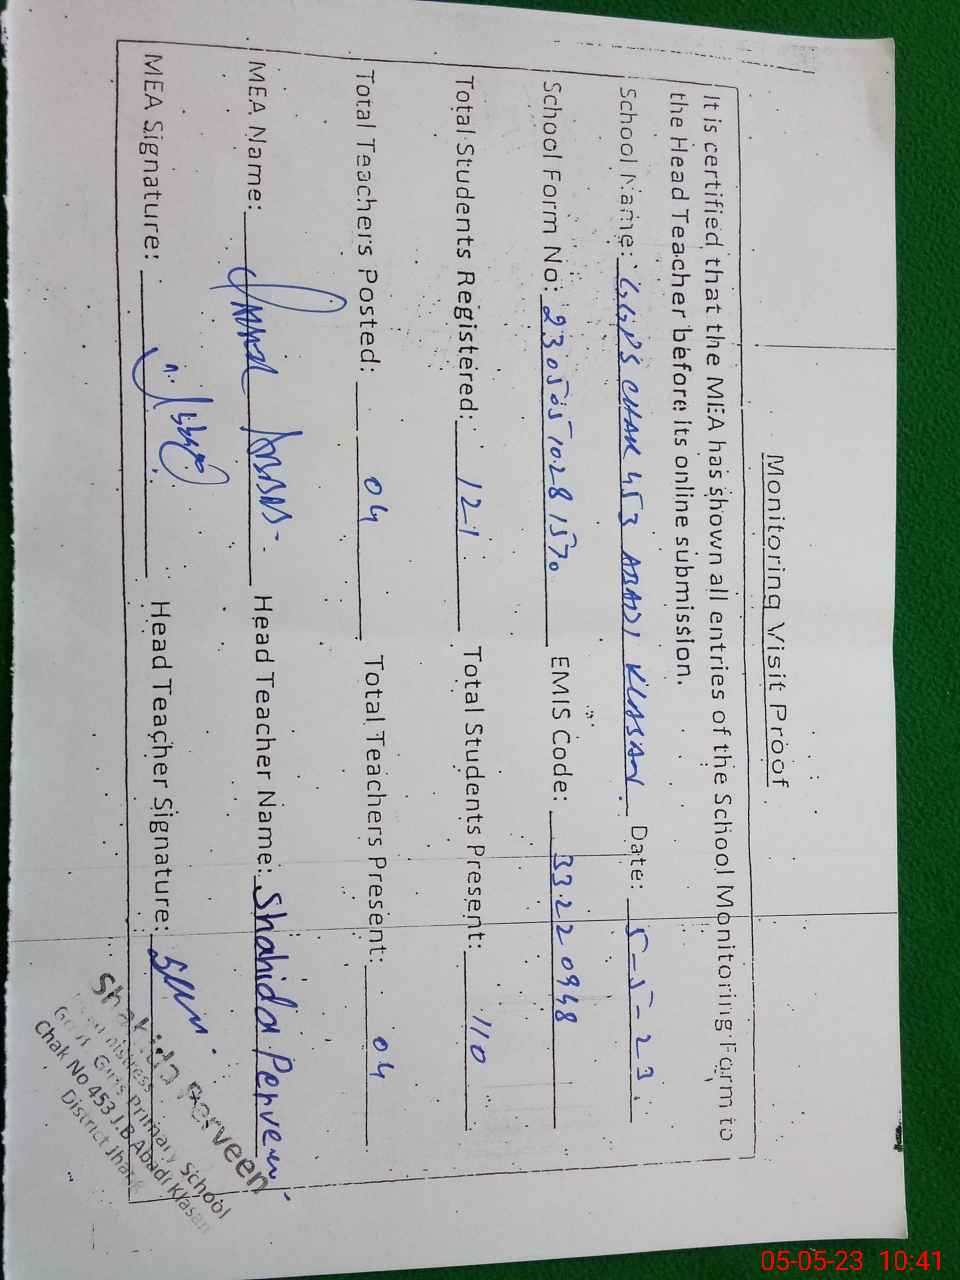 Monitoring Visit Proof
It is certified that the MEA has shown all entries of the School Monitoring Form to
the Head Teacher before its online submission.
School Name: GGPS CHAK 453 ABADI KLASAN. Date: 5-5-23
School Form No: 23050510281570 EMIS Code: 33220948
Total Students Registered: 121 Total Students Present: 110
Total Teachers Posted: 04 Total Teachers Present: 04
MEA Name: Abbas. Head Teacher Name: Shahida Perveen.
MEA Signature: Head Teacher Signature:
Shahida Perveen
Headmistress
Govt. Girls Primary School
Chak No 453 J.B Abadi Klasan
District Jhang
05-05-23 10:41